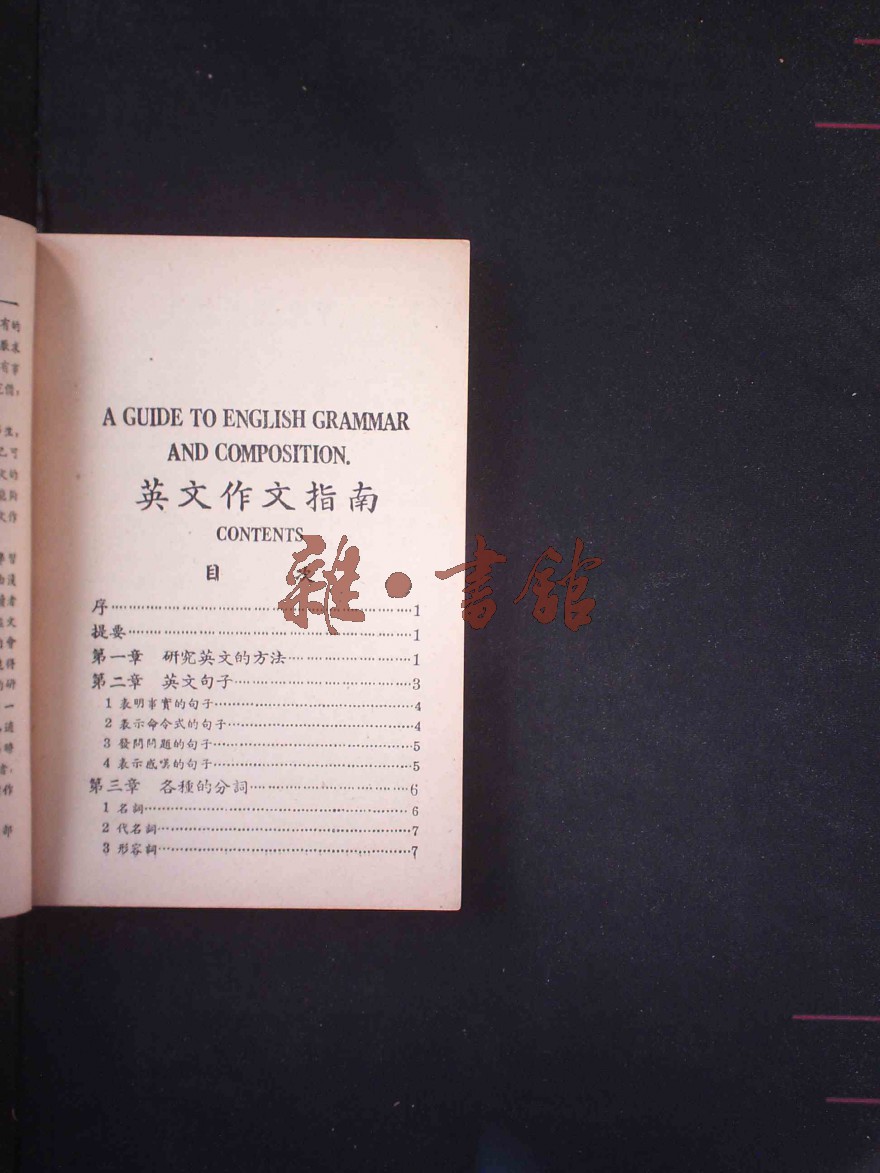 有的
有事
生，
已可
文的
能夠
文作
學習
由淺
讀者
英文
自會
獲得
的研
一
時
者。
作
部
A GUIDE TO ENGLISH GRAMMAR
AND COMPOSITION.
英文作文指南
CONTENTS
目 次
雜·書館
序……1
提要……1
第一章 研究英文的方法……1
第二章 英文句子……3
1 表明事實的句子……4
2 表示命令式的句子……4
3 發問問題的句子……5
4 表示感嘆的句子……5
第三章 各種的分詞……6
1 名詞……6
2 代名詞……7
3 形容詞……7